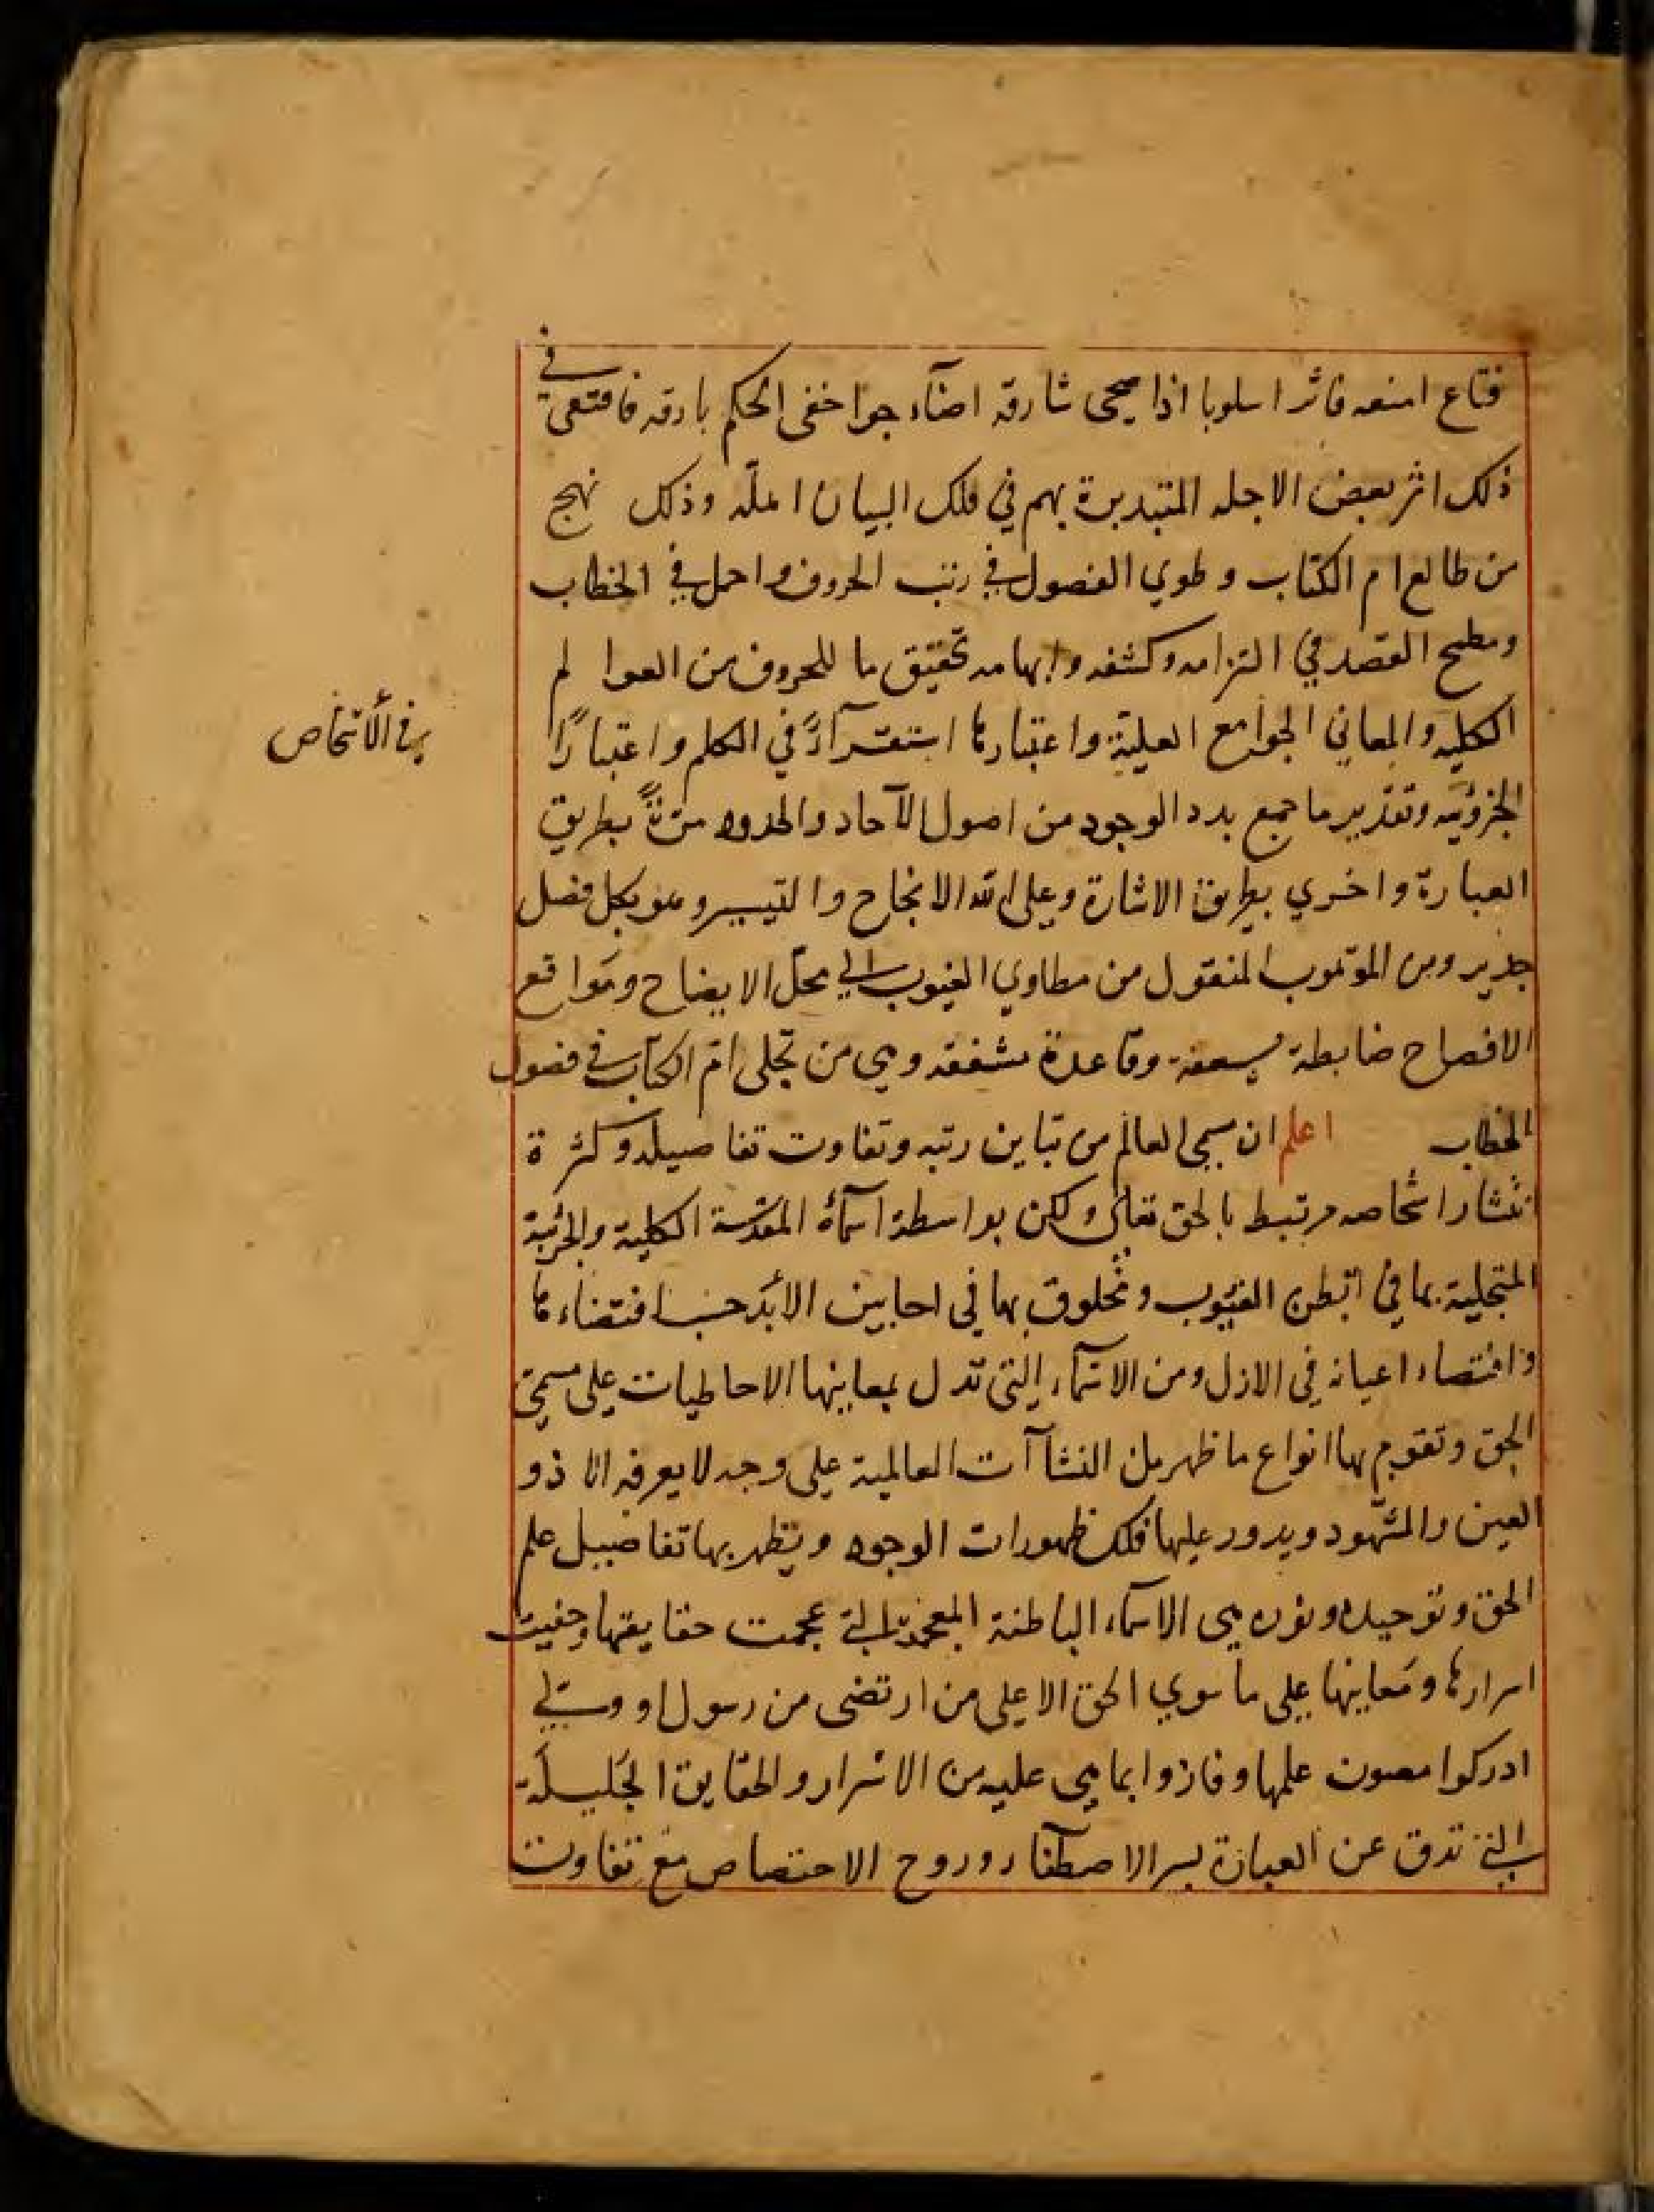 قناع امنعه فاثر اسلوبا اذا صحى شارقه اضآء جوا خفى الحكم بارقه فاقتفى في
ذلك اثر بعض الاجله المتبدرة بهم في فلك البيان اهله وذلك نهج
من طالع ام الكتاب وطوي الفصول في رتب الحروف واحمل في الخطاب
ومطمح القصد في التزامه وكشفه وابهامه تحقيق ما للحروف من العوالم
الكليه والمعاني الجوامع العلية واعتبارها استقرآءً في الكلم واعتبارًا
في الأشخاص
الجزويه وتقدير ما جمع بدد الوجود من اصول الآحاد والحدود مرّةً بطريق
العبارة واخري بطريق الاشارة وعلى الله الانجاح والتيسير وهو بكل فضل
جدير ومن الموهوب المنقول من مطاوي الغيوب الي محل الايضاح ومواقع
الافصاح ضابطة مسعفة وقاعدة مشفقه وهي من تجلى ام الكتاب في فصول
الخطاب اعلم ان مسمى العالم من تباين رتبه وتفاوت تفاصيله وكثرة
انتشار اشخاصه مرتبط بالحق تعالى ولكن بواسطة اسمآئه المقدسة الكلية والجزئية
المتجلية بها في ابطن الغيوب ومخلوق بها في احايين الأبد حسب اقتضاءها
واقتضاء اعيانه في الازل ومن الاسمآء التى تدل بمعاينها الاحاطيات على مسمى
الحق وتقوم بها انواع ما ظهر من النشاآت العالمية على وجه لا يعرفه الا ذو
العين والشهود ويدور عليها فلك ظهورات الوجود ويظهر بها تفاصيل علم
الحق وتوحيده ونوره هى الاسماء الباطنة المعجمة التي عجمت حقايقها وخفيت
اسرارها ومعاينها على ما سوي الحق الا على من ارتضى من رسول او ولي
ادركوا مصون علمها وفازوا بما هى عليه من الاسرار والحقايق الجليلة
التي تدق عن العبارة بسر الاصطفا وروح الاختصاص مع تفاوت